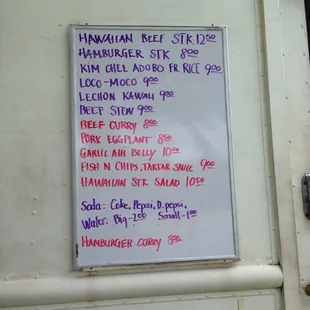 HAWAIIAN BEEF STK 12.50
HAMBURGER STK 8.00
KIM CHEE ADOBO FR. RICE 9.00
LOCO-MOCO 9.00
LECHON KAWALI 9.00
BEEF STEW 9.00
BEEF CURRY 8.50
PORK EGGPLANT 8.50
GARLIC AHI BELLY 10.50
FISH N CHIPS, TARTAR SAUCE 9.00
HAWAIIAN STK SALAD 10.50
Soda: Coke, Pepsi, D. pepsi,
Water: Big-2.00 Small-1.00
HAMBURGER CURRY 8.50